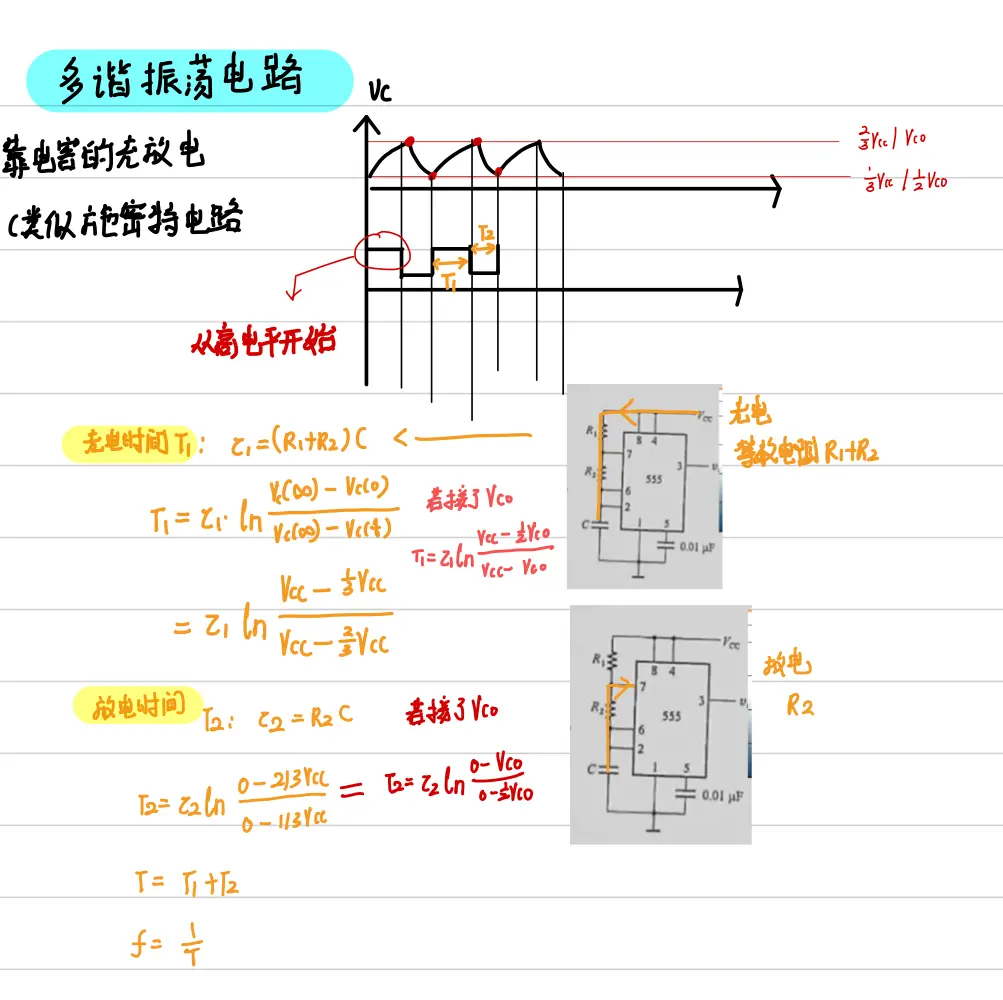 多谐振荡电路
VC
靠电害的充放电
(类似施密特电路
2/3 Vcc / VCO
1/3 Vcc / 1/2 VCO
T2
T1
从高电平开始
充电时间 T1: τ1=(R1+R2)C
T1 = τ1· ln (Vc(∞) - Vc(0)) / (Vc(∞) - Vc(t))
若接了 VCO
T1=τ1 ln (Vcc - 1/2 VCO) / (Vcc - VCO)
= τ1 ln (Vcc - 1/3 Vcc) / (Vcc - 2/3 Vcc)
VCC
R1
8 4
7
R2
555
3
6
2
C
1
5
0.01 μF
充电
等效电阻 R1+R2
放电时间 T2: τ2 = R2 C
若接了 VCO
T2= τ2 ln (0 - 2/3 Vcc) / (0 - 1/3 Vcc) = T2= τ2 ln (0 - VCO) / (0 - 1/2 VCO)
VCC
R1
8 4
7
R2
555
3
6
2
C
1
5
0.01 μF
放电
R2
T = T1 + T2
f = 1/T